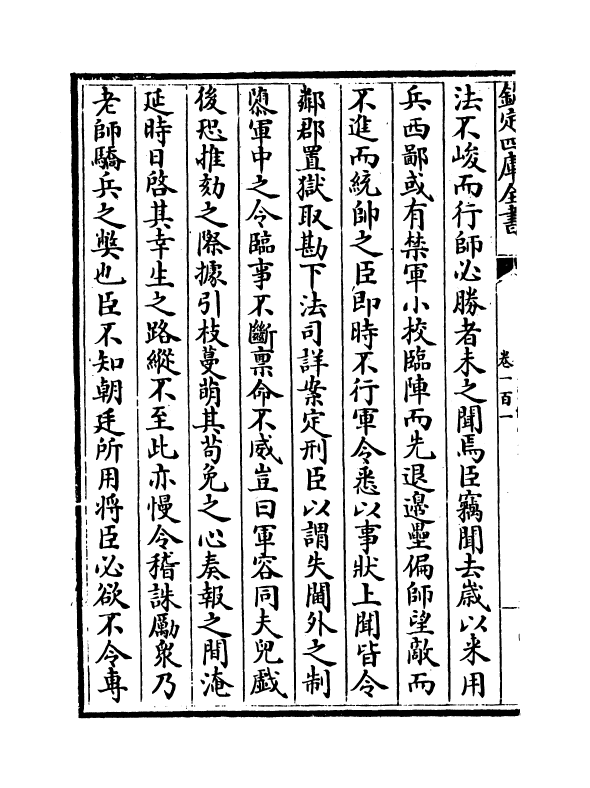 欽定四庫全書
卷一百一
法不峻而行師必勝者未之聞焉臣竊聞去歲以来用
兵西鄙或有禁軍小校臨陣而先退邊壘偏師望敵而
不進而統帥之臣即時不行軍令悉以事狀上聞皆令
鄰郡置獄取勘下法司詳案定刑臣以謂失閫外之制
隳軍中之令臨事不斷禀命不威豈曰軍容同夫兒戲
後恐推劾之際據引枝蔓萌其茍免之心奏報之間淹
延時日啓其幸生之路縱不至此亦慢令稽誅勵衆乃
老師驕兵之獘也臣不知朝廷所用将臣必欲不令專